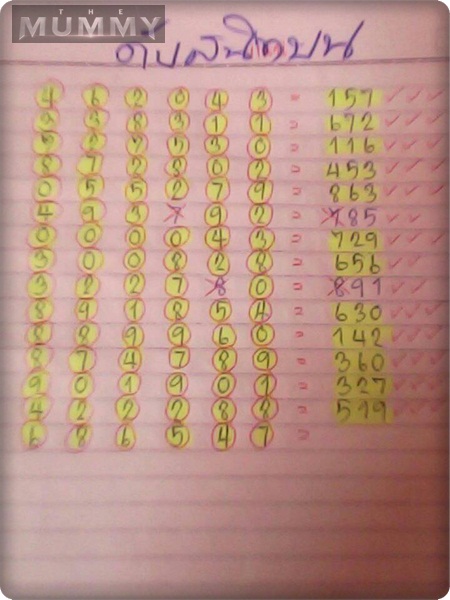 THE
MUMMY
ดับสนิทบน
4 6 2 0 4 3 = 157 ✓✓✓
9 3 8 3 1 1 = 672 ✓✓✓
5 8 7 5 3 0 = 116 ✓✓✓
8 7 2 8 0 2 = 453 ✓✓✓
0 5 5 2 7 9 = 863 ✓✓✓
4 9 3 7 9 2 = 785 ✓✓
0 0 0 0 4 3 = 729 ✓✓✓
3 0 0 8 2 8 = 656 ✓✓✓
3 2 2 7 8 0 = 891 ✓✓
8 9 1 8 5 4 = 630 ✓✓✓
8 8 9 9 6 0 = 142 ✓✓✓
8 7 4 7 8 9 = 360 ✓✓✓
9 0 1 9 0 1 = 327 ✓✓✓
4 2 2 2 8 2 = 519 ✓✓✓
6 8 6 5 4 7 =